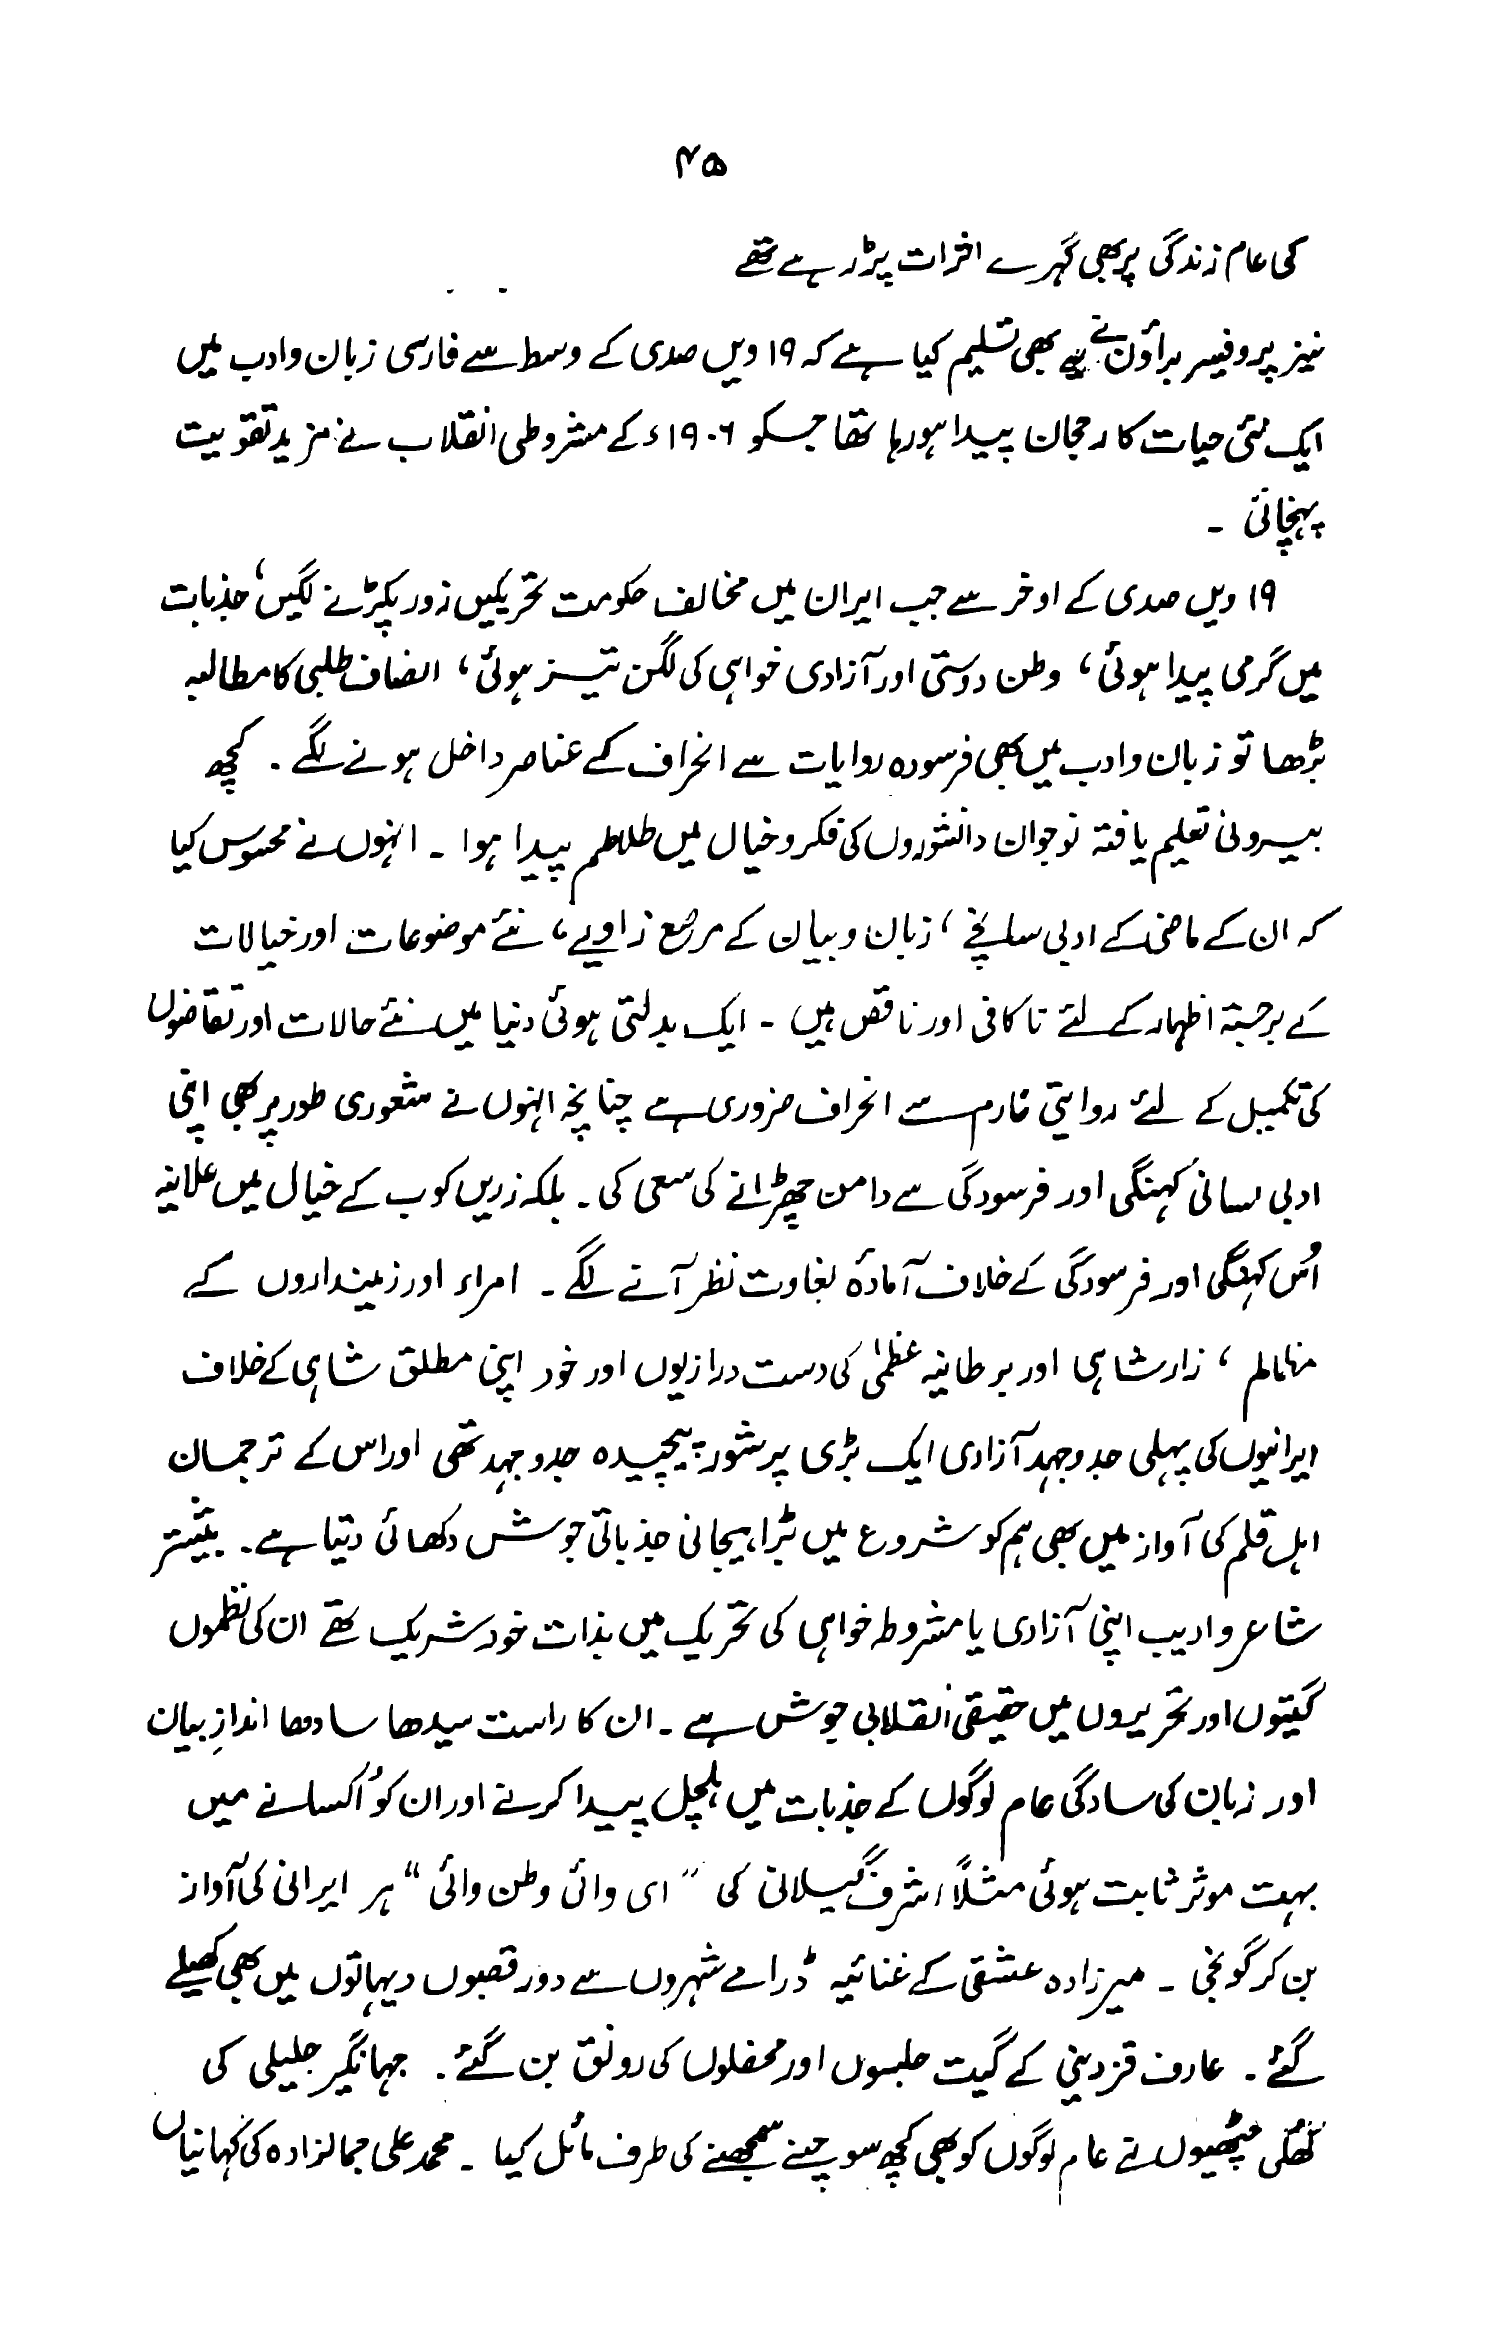 ۴۵
کی عام زندگی پر بھی گہرے اثرات پڑ رہے تھے
نیز پروفیسر براؤن نے یہ بھی تسلیم کیا ہے کہ ۱۹ ویں صدی کے وسط سے فارسی زبان و ادب میں
ایک نئی حیات کا رجحان پیدا ہو رہا تھا جسکو ۱۹۰۶ء کے مشروطی انقلاب نے مزید تقویت
پہنچائی ۔
۱۹ ویں صدی کے اوخر سے جب ایران میں مخالف حکومت تحریکیں زور پکڑنے لگیں، جذبات
میں گرمی پیدا ہوئی، وطن دوستی اور آزادی خواہی کی لگن تیز ہوئی، انصاف طلبی کا مطالبہ
بڑھا تو زبان و ادب میں بھی فرسودہ روایات سے انحراف کے عناصر داخل ہونے لگے ۔ کچھ
بیرونی تعلیم یافتہ نوجوان دانشوروں کی فکر و خیال میں طلاطم پیدا ہوا ۔ انہوں نے محسوس کیا
کہ ان کے ماضی کے ادبی سانچے، زبان و بیان کے مرصع زاویے، نئے موضوعات اور خیالات
کے برجستہ اظہار کے لئے ناکافی اور ناقص ہیں ۔ ایک بدلتی ہوئی دنیا میں نئے حالات اور تقاضوں
کی تکمیل کے لئے روایتی فارم سے انحراف ضروری ہے چنانچہ انہوں نے شعوری طور پر بھی اپنی
ادبی لسانی کہنگی اور فرسودگی سے دامن چھڑانے کی سعی کی ۔ بلکہ زریں کوب کے خیال میں علانیہ
اُس کہنگی اور فرسودگی کے خلاف آمادۂ بغاوت نظر آنے لگے ۔ امراء اور زمینداروں کے
مظالم، زار شاہی اور برطانیہ عظمیٰ کی دست درازیوں اور خود اپنی مطلق شاہی کے خلاف
ایرانیوں کی پہلی جدوجہد آزادی ایک بڑی پرشور پیچیدہ جدوجہد تھی اور اس کے ترجمان
اہل قلم کی آواز میں بھی ہم کو شروع میں بڑا ہیجانی جذباتی جوش دکھائی دیتا ہے ۔ بیشتر
شاعر و ادیب اپنی آزادی یا مشروطہ خواہی کی تحریک میں بذات خود شریک تھے ان کی نظموں
گیتوں اور تحریروں میں حقیقی انقلابی جوش ہے ۔ ان کا راست سیدھا سادھا اندازِ بیان
اور زبان کی سادگی عام لوگوں کے جذبات میں ہلچل پیدا کرنے اور ان کو اُکسانے میں
بہت موثر ثابت ہوئی مثلاً اشرف گیلانی کی "ای وائی وطن وائی" ہر ایرانی کی آواز
بن کر گونجی ۔ میرزادہ عشقی کے غنائیہ ڈرامے شہروں سے دور قصبوں دیہاتوں میں بھی کھیلے
گئے ۔ عارف قزدینی کے گیت جلسوں اور محفلوں کی رونق بن گئے ۔ جہانگیر جلیلی کی
کھلی چٹھیوں نے عام لوگوں کو بھی کچھ سوچنے سمجھنے کی طرف مائل کیا ۔ محمد علی جمالزادہ کی کہانیاں